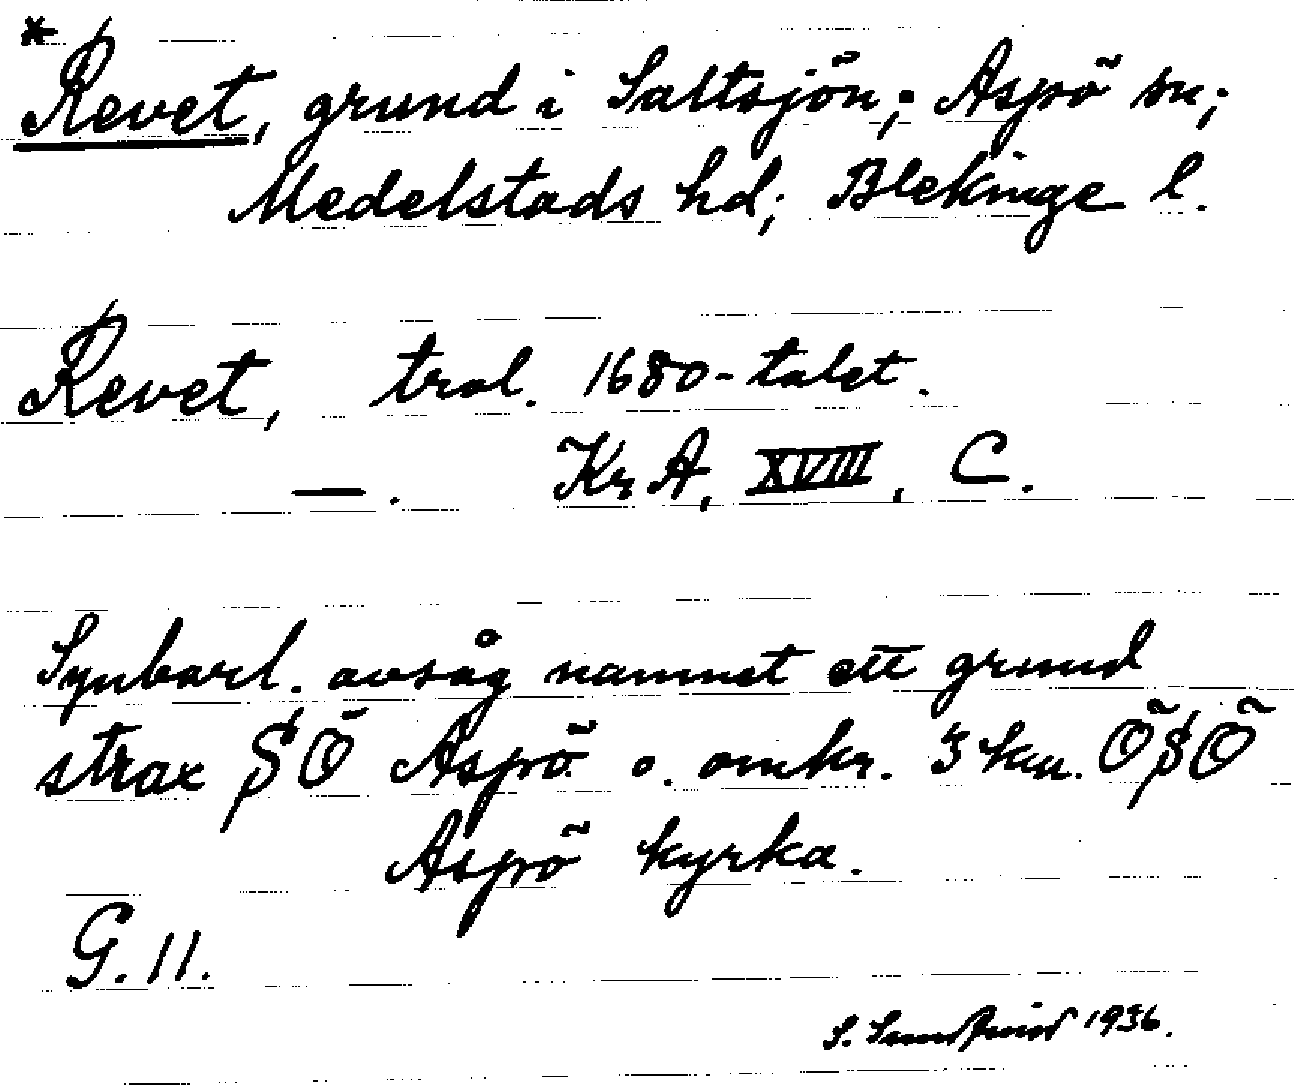 *
Revet, grund i Saltsjön; Aspö sn;
Medelstads hd; Blekinge l.
Revet, trol. 1680-talet.
—. Kr A, XVIII, C.
Synbarl. avsåg namnet ett grund
strax SÖ Aspö o. omkr. 3 km. ÖSÖ
Aspö kyrka.
G. 11.
S. 1936.